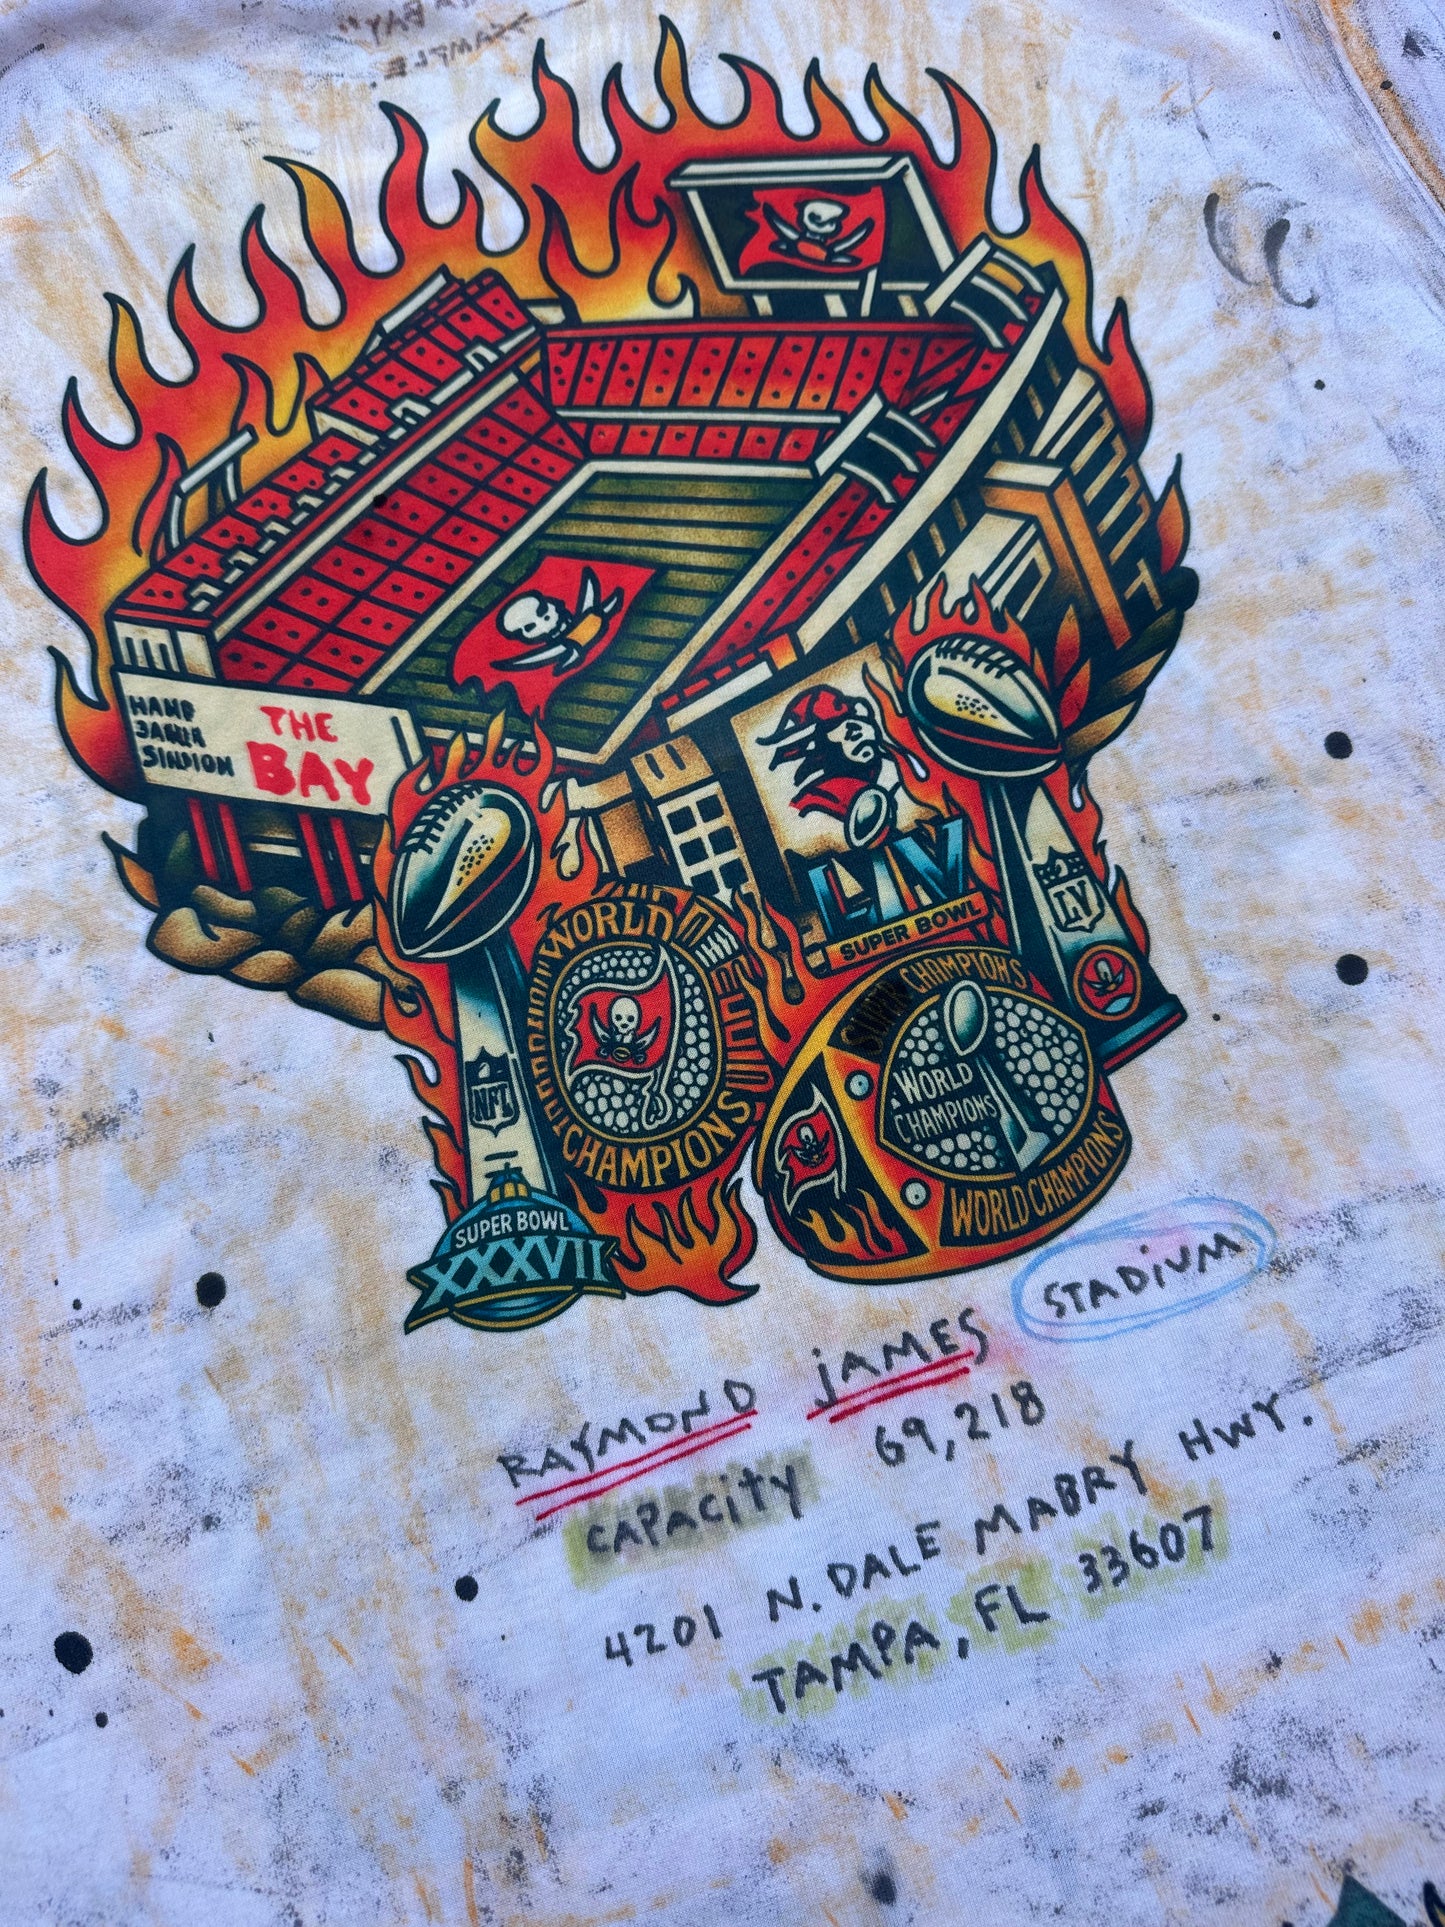 BAY"
SAMPLE
HAMP
JAMUR
SINDION
THE
BAY
LIV
SUPER BOWL
LV
WORLD
CHAMPIONS
NFL
SUPER CHAMPIOHS
WORLD
CHAMPIONS
WORLD CHAMPIONS
SUPER BOWL
XXXVII
RAYMOND JAMES STADIUM
CAPACITY 69,218
4201 N. DALE MABRY HWY.
TAMPA, FL 33607